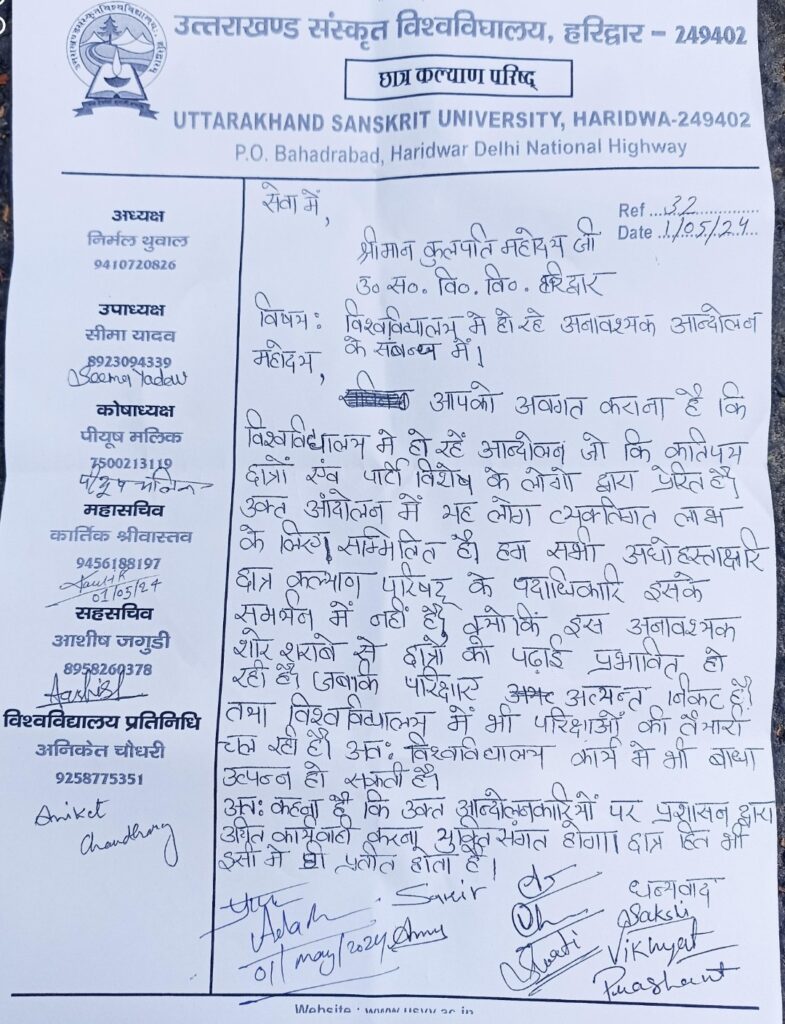 उत्तराखण्ड संस्कृत विश्वविघालय, हरिद्वार – 249402
छात्र कल्याण परिषद्
UTTARAKHAND SANSKRIT UNIVERSITY, HARIDWA-249402
P.O. Bahadrabad, Haridwar Delhi National Highway
अध्यक्ष
निर्मल थुवाल
9410720826
उपाध्यक्ष
सीमा यादव
8923094339
Seema Yadav
कोषाध्यक्ष
पीयूष मलिक
7500213119
पीयूष मलिक
महासचिव
कार्तिक श्रीवास्तव
9456188197
Kartik
01/05/24
सहसचिव
आशीष जगुडी
8958260378
Aashish
विश्वविद्यालय प्रतिनिधि
अनिकेत चौधरी
9258775351
Aniket
Chaudhary
सेवा में,
Ref ...32..............
Date ..1/05/24...
श्रीमान कुलपति महोदय जी
उ० स०. वि०. वि०. हरिद्वार
विषय: विश्वविद्यालय मे हो रहे अनावश्यक आन्दोलन
के संबन्ध में।
महोदय,
आपको अवगत कराना है कि
विश्वविद्यालय मे हो रहें आन्दोलन जो कि कतिपय
छात्रों एंव पार्टी विशेष के लोगो द्वारा प्रेरित है।
उक्त आंदोलन में यह लोग व्यक्तिगत लाभ
के लिए सम्मिलित है। हम सभी अधोहस्ताक्षरि
छात्र कल्याण परिषद् के पदाधिकारि इसके
समर्थन में नहीं है। क्योकिं इस अनावश्यक
शोर शराबे से छात्रों की पढ़ाई प्रभावित हो
रही है। जबकि परिक्षाए अत्यन्त निकट है।
तथा विश्वविद्यालय में भी परिक्षाओं की तैयारी
चल रही है। अत: विश्वविद्यालय कार्य मे भी बाधा
उत्पन्न हो सकती है।
अत: कहना है कि उक्त आन्दोलनकारियों पर प्रशासन द्वारा
उचित कार्यवाही करना युक्ति संगत होगा। छात्र हित भी
इसी मे ही प्रतीत होता है।
धन्यवाद
Sakshi
Swati
Vikhyat
Prashant
01/may/2024
Website : www.usvv.ac.in